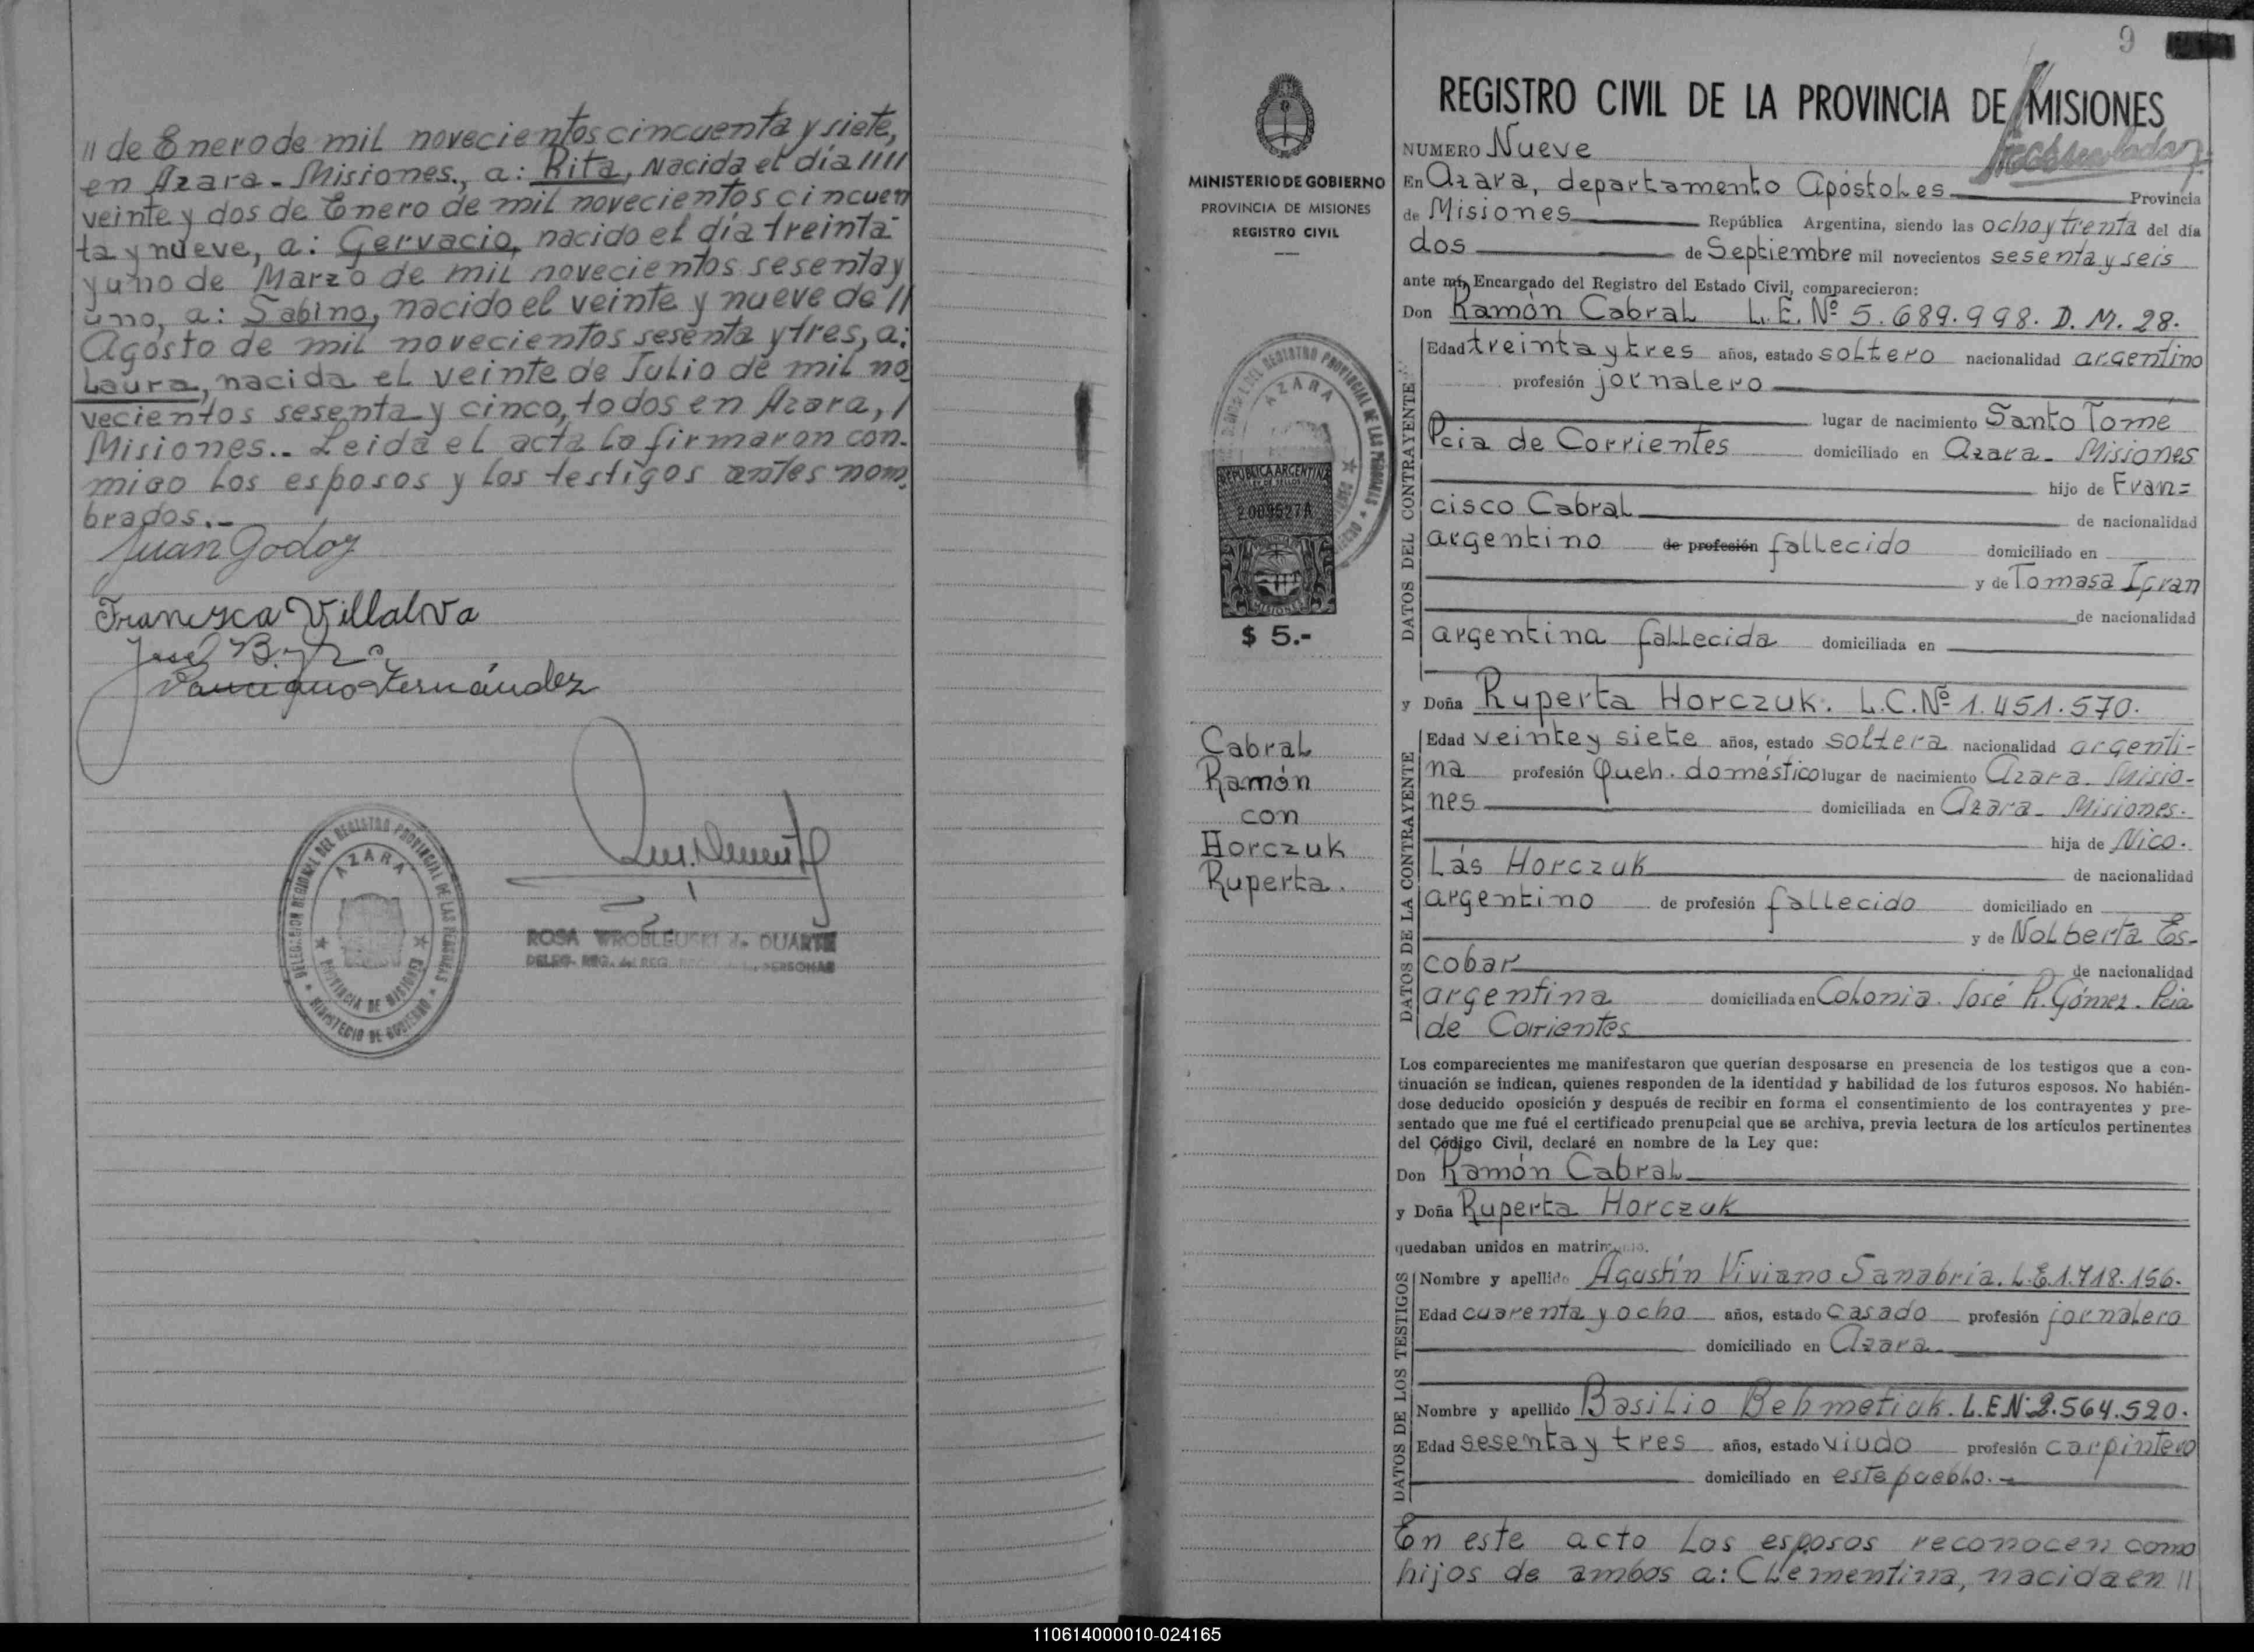 " de Enero de mil novecientos cincuenta y siete,
en Azara - Misiones., a: Rita, Nacida el día /////
veinte y dos de Enero de mil novecientos cincuen
ta y nueve, a: Gervacio, nacido el día treinta
y uno de Marzo de mil novecientos sesenta y
uno, a: Sabino, nacido el veinte y nueve de //
Agosto de mil novecientos sesenta y tres, a:
Laura, nacida el veinte de Julio de mil no
vecientos sesenta y cinco, todos en Azara, /
Misiones.- Leida el acta la firmaron con.
migo los esposos y los testigos antes nom.
brados.-
Juan Godoy
Francisca Villalva
José B.
Fernández
DELEGACION REGIONAL DEL REGISTRO PROVINCIAL DE LAS PERSONAS
AZARA
PROVINCIA DE MISIONES
MINISTERIO DE GOBIERNO
ROSA WROBLEUSKI de DUARTE
DELEG. REG. del REG. PERSONAS
9
MINISTERIO DE GOBIERNO
PROVINCIA DE MISIONES
REGISTRO CIVIL
AZARA
REPUBLICA ARGENTINA
MISIONES
$ 5.-
Cabral
Ramón
con
Horczuk
Ruperta.
REGISTRO CIVIL DE LA PROVINCIA DE MISIONES
NUMERO Nueve
En Azara, departamento Apóstoles Provincia
de Misiones República Argentina, siendo las ocho y trenta del día
dos de Septiembre mil novecientos sesenta y seis
ante mí, Encargado del Registro del Estado Civil, comparecieron:
Don Ramón Cabral L.E. Nº 5.689.998. D.M. 28.
DATOS DEL CONTRAYENTE
Edad treinta y tres años, estado soltero nacionalidad argentino
profesión jornalero
lugar de nacimiento Santo Tomé
Pcia de Corrientes domiciliado en Azara - Misiones
hijo de Fran=
cisco Cabral de nacionalidad
argentino de profesión fallecido domiciliado en
y de Tomasa Ifran
de nacionalidad
argentina fallecida domiciliada en
y Doña Ruperta Horczuk. L.C. Nº 1.451.570.
DATOS DE LA CONTRAYENTE
Edad veinte y siete años, estado soltera nacionalidad argenti-
na profesión Queh. doméstico lugar de nacimiento Azara - Misio-
nes domiciliada en Azara - Misiones.
hija de Nico.
Lás Horczuk de nacionalidad
argentino de profesión fallecido domiciliado en
y de Nolberta Es-
cobar de nacionalidad
argentina domiciliada en Colonia. José R. Gómez. Pcia
de Corrientes
Los comparecientes me manifestaron que querían desposarse en presencia de los testigos que a con-
tinuación se indican, quienes responden de la identidad y habilidad de los futuros esposos. No habién-
dose deducido oposición y después de recibir en forma el consentimiento de los contrayentes y pre-
sentado que me fué el certificado prenupcial que se archiva, previa lectura de los artículos pertinentes
del Código Civil, declaré en nombre de la Ley que:
Don Ramón Cabral
y Doña Ruperta Horczuk
quedaban unidos en matrimonio.
DATOS DE LOS TESTIGOS
Nombre y apellido Agustín Viviano Sanabria. L.E. 1.718.156.
Edad cuarenta y ocho años, estado casado profesión jornalero
domiciliado en Azara
Nombre y apellido Basilio Behmetiuk. L.E.Nº 2.564.520.
Edad sesenta y tres años, estado viudo profesión carpintero
domiciliado en este pueblo.-
En este acto los esposos reconocen como
hijos de ambos a: Clementina, nacida en //
110614000010-024165